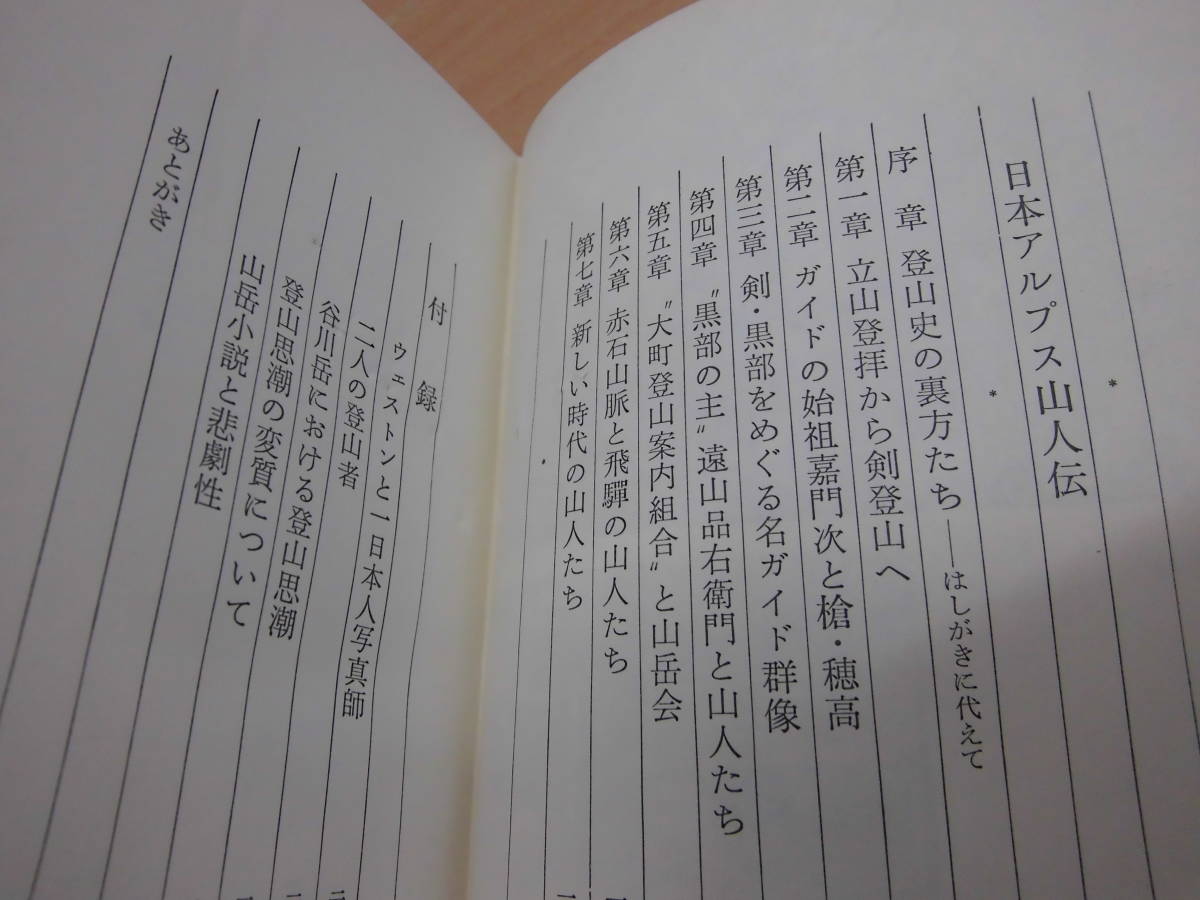 日本アルプス山人伝
*
*
序章 登山史の裏方たち――はしがきに代えて
第一章 立山登拝から剣登山へ
第二章 ガイドの始祖嘉門次と槍・穂高
第三章 剣・黒部をめぐる名ガイド群像
第四章 〝黒部の主〟遠山品右衛門と山人たち
第五章 〝大町登山案内組合〟と山岳会
第六章 赤石山脈と飛騨の山人たち
第七章 新しい時代の山人たち
付録
ウェストンと一日本人写真師
二人の登山者
谷川岳における登山思潮
登山思潮の変質について
山岳小説と悲劇性
あとがき